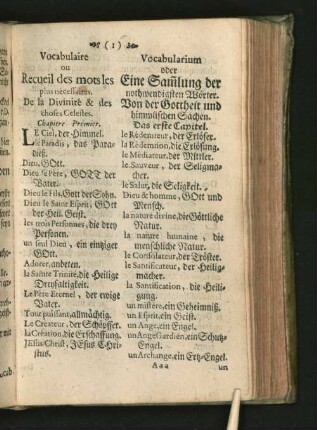 (1)
Vocabulaire
ou
Recueil des mots les
plus nécessaires.
De la Divinité & des
choses Celestes.
Chapitre Premier.
LE Ciel, der Himmel.
le Paradis, das Para-
dieß.
Dieu, GOtt.
Dieu le Père, GOTT der
Vater.
Dieu le Fils, Gott der Sohn.
Dieu le Saint Esprit, GOtt
der Heil. Geist.
les trois Personnes, die drey
Personen.
un seul Dieu, ein eintziger
GOtt.
Adorer, anbeten.
la Sainte Trinité, die Heilige
Dreyfaltigkeit.
Le Père Eternel, der ewige
Vater.
Tout puissant, allmächtig.
Le Createur, der Schöpffer.
la Création, die Erschaffung.
JEsus-Christ, JEsus CHri-
stus.
Vocabularium
oder
Eine Sam̃lung der
nothwendigsten Wörter.
Von der Gottheit und
himmlischen Sachen.
Das erste Capitel.
le Rédemteur, der Erlöser.
la Rédemtion, die Erlösung.
le Médiateur, der Mittler.
le Sauveur, der Seligma-
cher.
le Salut, die Seligkeit.
Dieu & homme, GOtt und
Mensch.
la nature divine, die Göttliche
Natur.
la nature humaine, die
menschliche Natur.
le Consolateur, der Tröster.
le Santificateur, der Heilig-
mächer.
la Santification, die Heili-
gung.
un mistère, ein Geheimniß.
un Esprit, ein Geist.
un Ange, ein Engel.
un Ange Gardien, ein Schutz-
Engel.
un Archange, ein Ertz-Engel.
Aaa
un